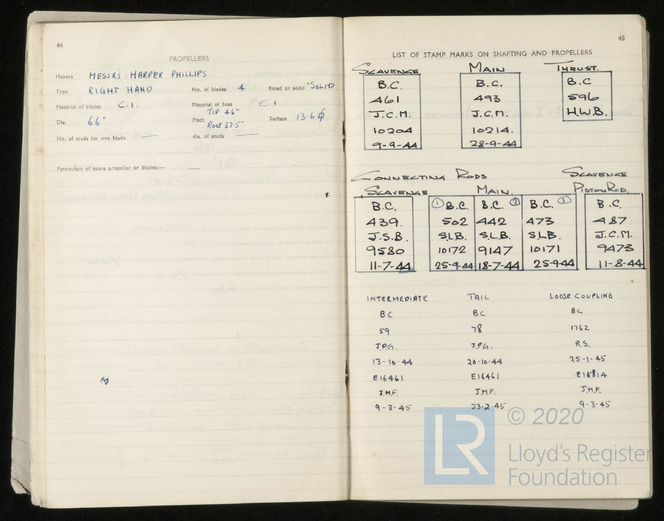 44
PROPELLERS
Makers MESSRS HARPER PHILLIPS
Type RIGHT HAND No. of blades 4 Fitted or solid "SOLID
Material of blades C.I. Material of boss C.I.
Dia. 66" Pitch TIP 46" ROOT 37.5" Surface 13.6
No. of studs for one blade — dia. of studs —
Particulars of spare propeller or blades:— —
45
LIST OF STAMP MARKS ON SHAFTING AND PROPELLERS
SCAVENGE MAIN THRUST.
B.C. B.C. B.C
461 493 596
J.C.M. J.C.M. H.W.B.
10204 10214.
9-9-44 28-9-44
CONNECTING RODS SCAVENGE
SCAVENGE MAIN. PISTON ROD.
B.C. ① B.C. B.C. ② B.C. B.C.
439. 502 442 473 487
J.S.B. S.L.B. S.L.B. S.L.B. J.C.M.
9580 10172 9147 10171 9473
11-7-44 25-9-44 18-7-44 25-9-44 11-8-44
INTERMEDIATE TAIL LOOSE COUPLING
BC BC BC
59 78 1762
J.P.G. J.P.G. R.S.
13-10-44 20-10-44 25-1-45
E16461 E16461
J.M.F. J.M.F. J.M.F.
9-3-45 23-2-45 9-3-45
© 2020
LR
Lloyd's Register
Foundation